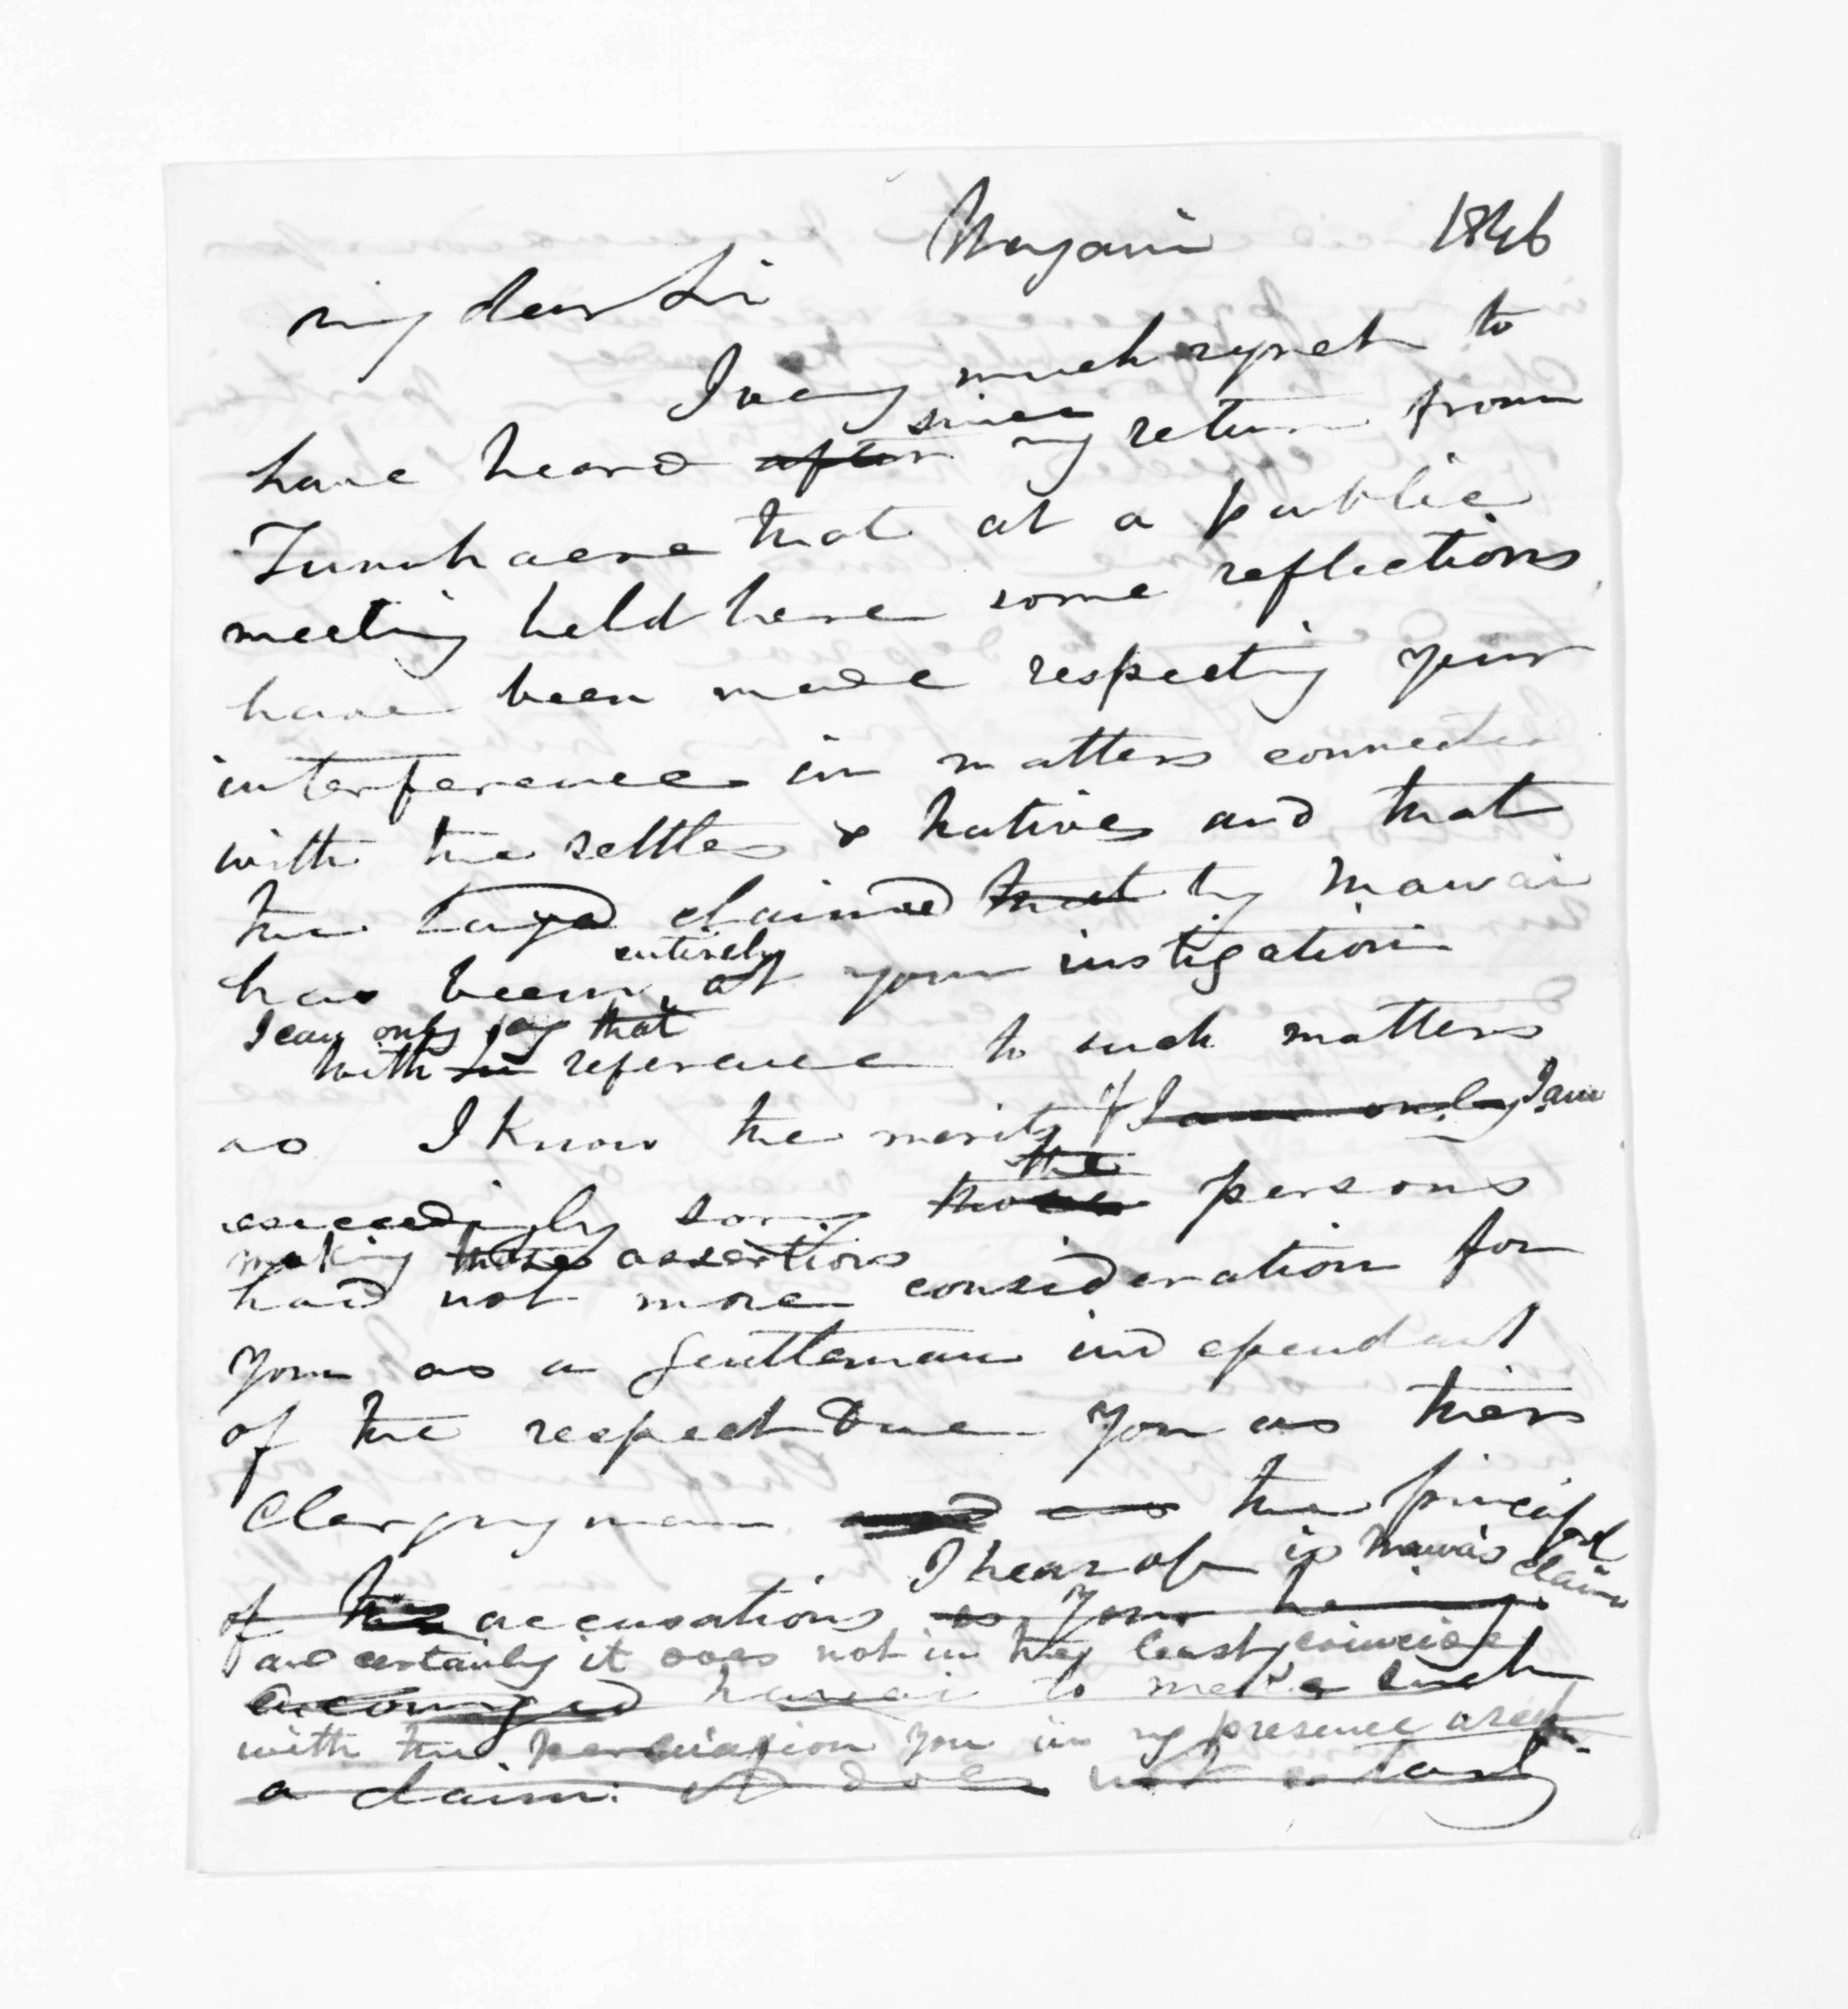 Wanganui 1846
My dear Sir
I very much regret to
have heard after since my return from
that at a public
meeting held here some reflections
have been made respecting your
interference in matters connected
with the settlers & natives and that
the claimed that by Mawai
has been entirely at your instigation
I can only say that
with in reference to such matters
as I know the merits of I am only I am
exceedingly sorry those the persons
making those assertions
had not more consideration for
you as a gentleman independent
of the respect due you as their
Clergyman and as the principal
I hear of is Mawai's claim
of the accusations is your having
and certainly it does not in the least coincide
encouraged Mawai to make such
with the persuasion you in my presence used
a claim. It does not certainly